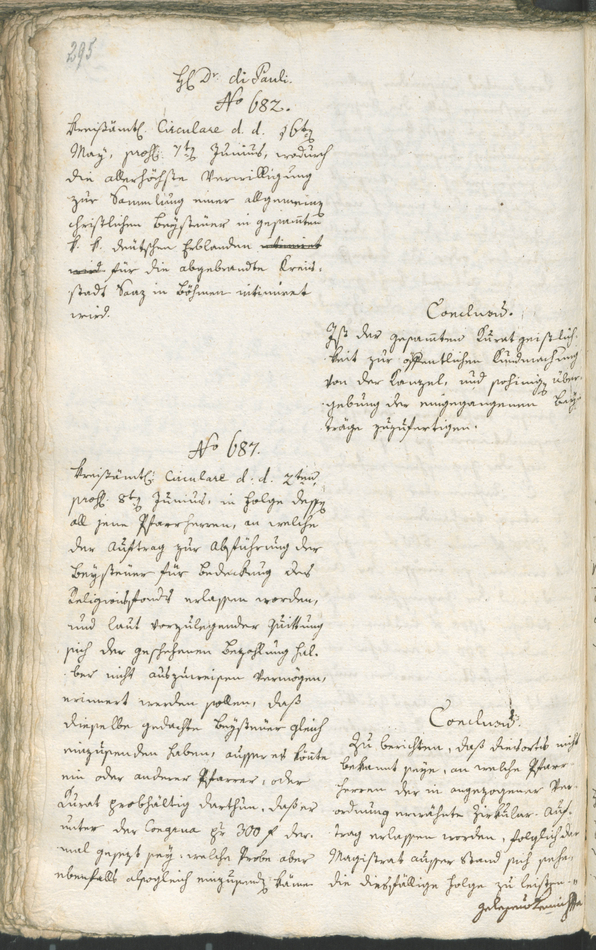 295
H. Dr. di Pauli.
No 682.
Kreisämtl. Circulare d. d. 16ten
May, præs. 7ten Junius, wodurch
die allerhöchste Verwilligung
zur Sammlung einer allgemeinen
christlichen Beysteuer in gesam̄ten
k. k. deutschen Erblanden intimiret
wird für die abgebrandte Kreis-
stadt Saaz in Böhmen intimiret
wird.
Conclusum.
Ist der gesam̄ten Kuratgeistlich-
keit zur öffentlichen Kundmachung
von der Kanzel, und sohiniger über-
gebung der eingegangenen Bey-
träge zuzufertigen.
No 687.
Kreisämtl. Circulare d. d. 2ten,
præs. 8ten Junius, in Folge dessen
all jene Pfarrherren, an welche
der Auftrag zur Abführung der
Beysteuer für Bedeckung des
Religionsfonds erlassen worden,
und laut vorzulegender Quittung
sich der geschehenen Bezahlung hal-
ber nicht auszuweisen vermögen,
erinnert werden sollen, daß
dieselbe gedachte Beysteuer gleich
einzusenden haben, ausser es könnte
ein oder anderer Pfarrer, oder
Curat probhältig darthun, daß er
unter der Congrua pr 300 f der-
mal gesezt sey, welche Probe aber
ebenfalls alsogleich einzusenden käme.
Conclusum.
Zu berichten, daß diesorts nicht
bekannt seye, an welche Pfarr-
herren der in angezogener Ver-
ordnung erwähnte Zirkular-Auf-
trag erlassen worden, folglich der
Magistrat ausser Stand sich sehe,
die diesfällige Folge zu leisten.